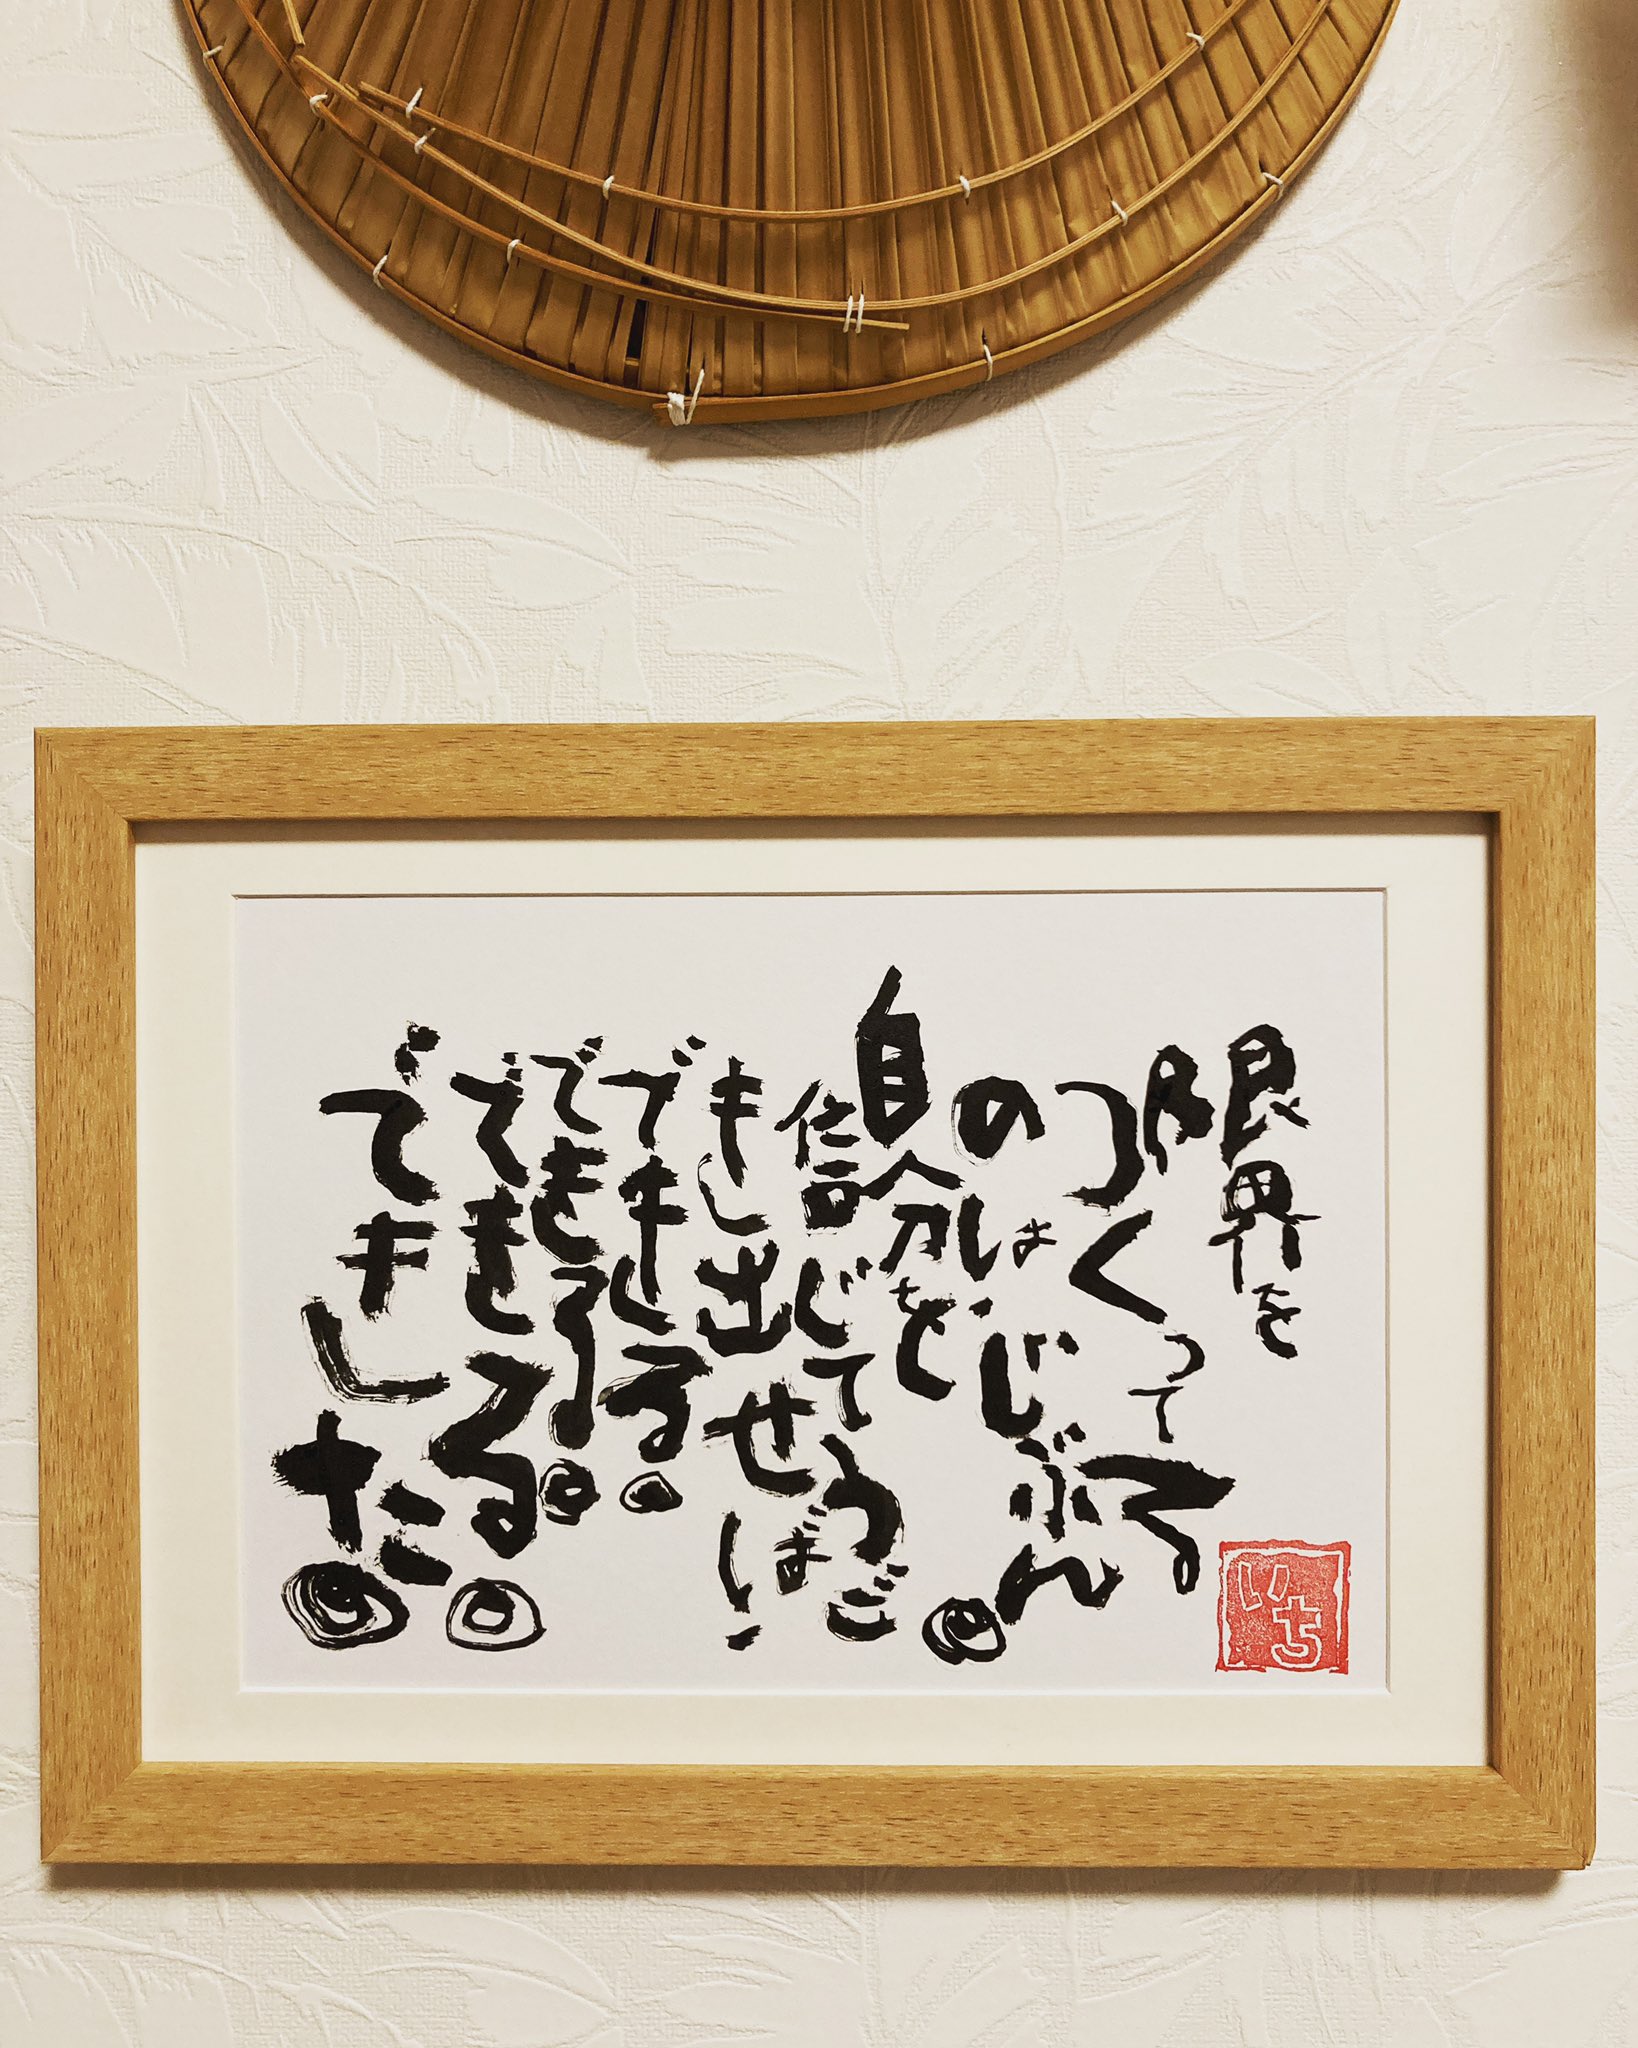 限界を
つくってる
のはじぶん。
自分を
信じてうご
き出せば
できる。
できる。
できる。
できた。
いち